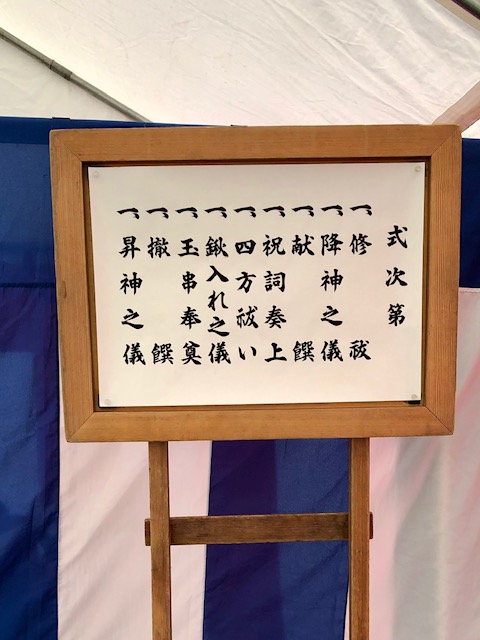 式次第
一、修祓
一、降神之儀
一、献饌
一、祝詞奏上
一、四方祓い
一、鍬入れ之儀
一、玉串奉奠
一、撤饌
一、昇神之儀